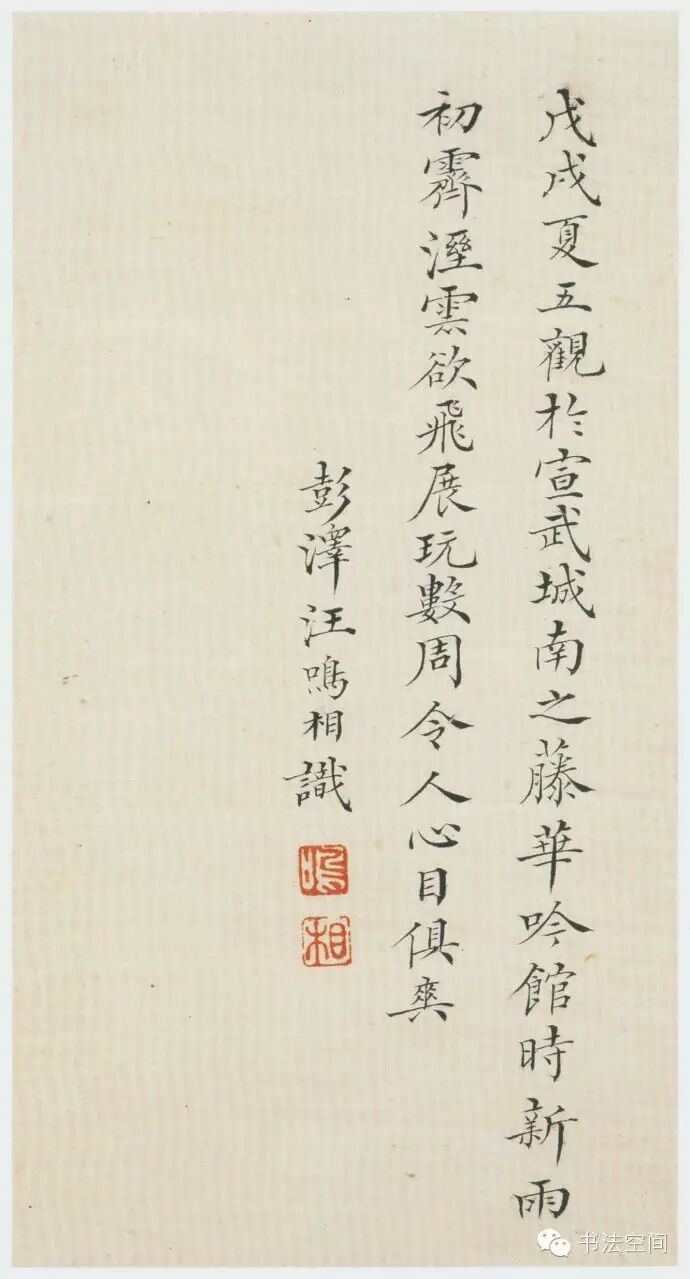 戊戌夏五觀於宣武城南之藤華吟館時新雨
初霽溼雲欲飛展玩數周令人心目俱爽
彭澤汪鳴相識
鳴
相
书法空间